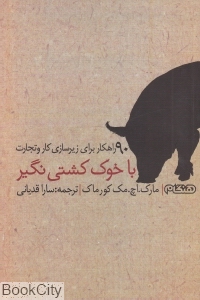 ۹۰ راهکار برای زیرسازی کار و تجارت
با خوک کشتی نگیر
هنگام
مارک.اچ.مک کورماک | ترجمه: سارا قدیانی
BookCity